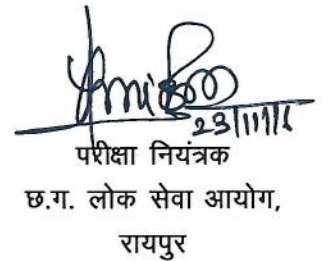 23/11/16
परीक्षा नियंत्रक
छ.ग. लोक सेवा आयोग,
रायपुर